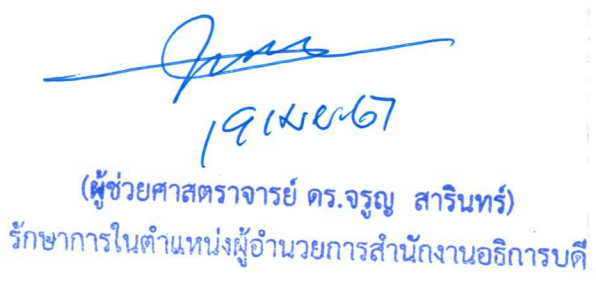 19 เม.ย. 67
(ผู้ช่วยศาสตราจารย์ ดร.จรูญ สารินทร์)
รักษาการในตำแหน่งผู้อำนวยการสำนักงานอธิการบดี